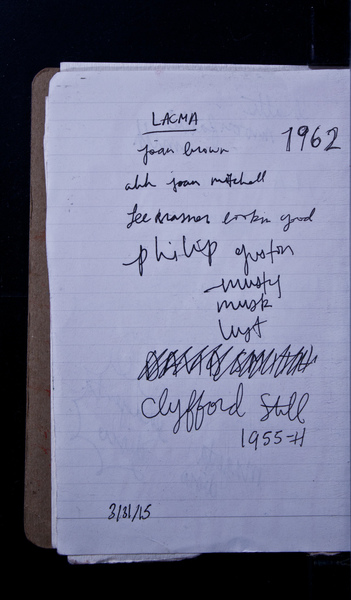 LACMA
1962
joan brown
ahh joan mitchell
Lee Krasner lookin good
philip guston
- musty
musk
lust
Clyfford Still
1955-H
3/31/15